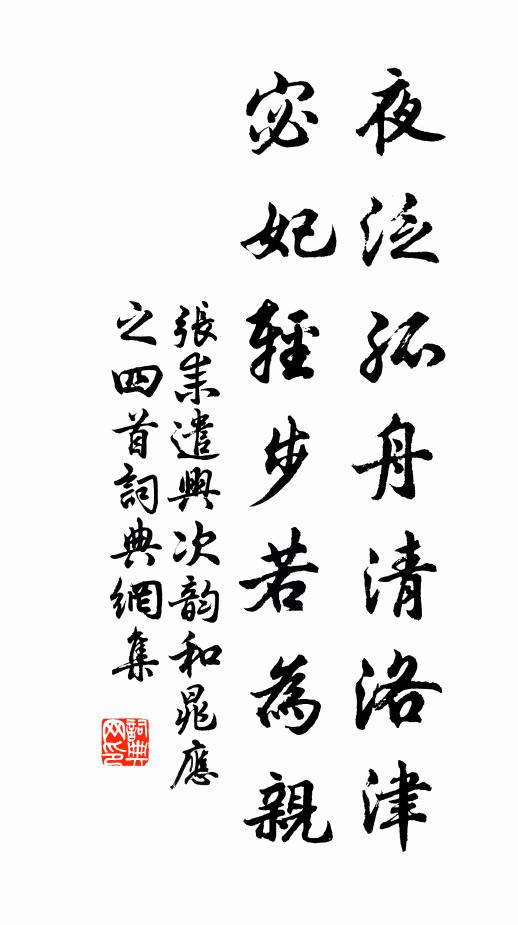 夜泛孤舟清洛津
宓妃輕步若為親
張耒遣興次韵和晁應
之四首詞典網集
詞典网印